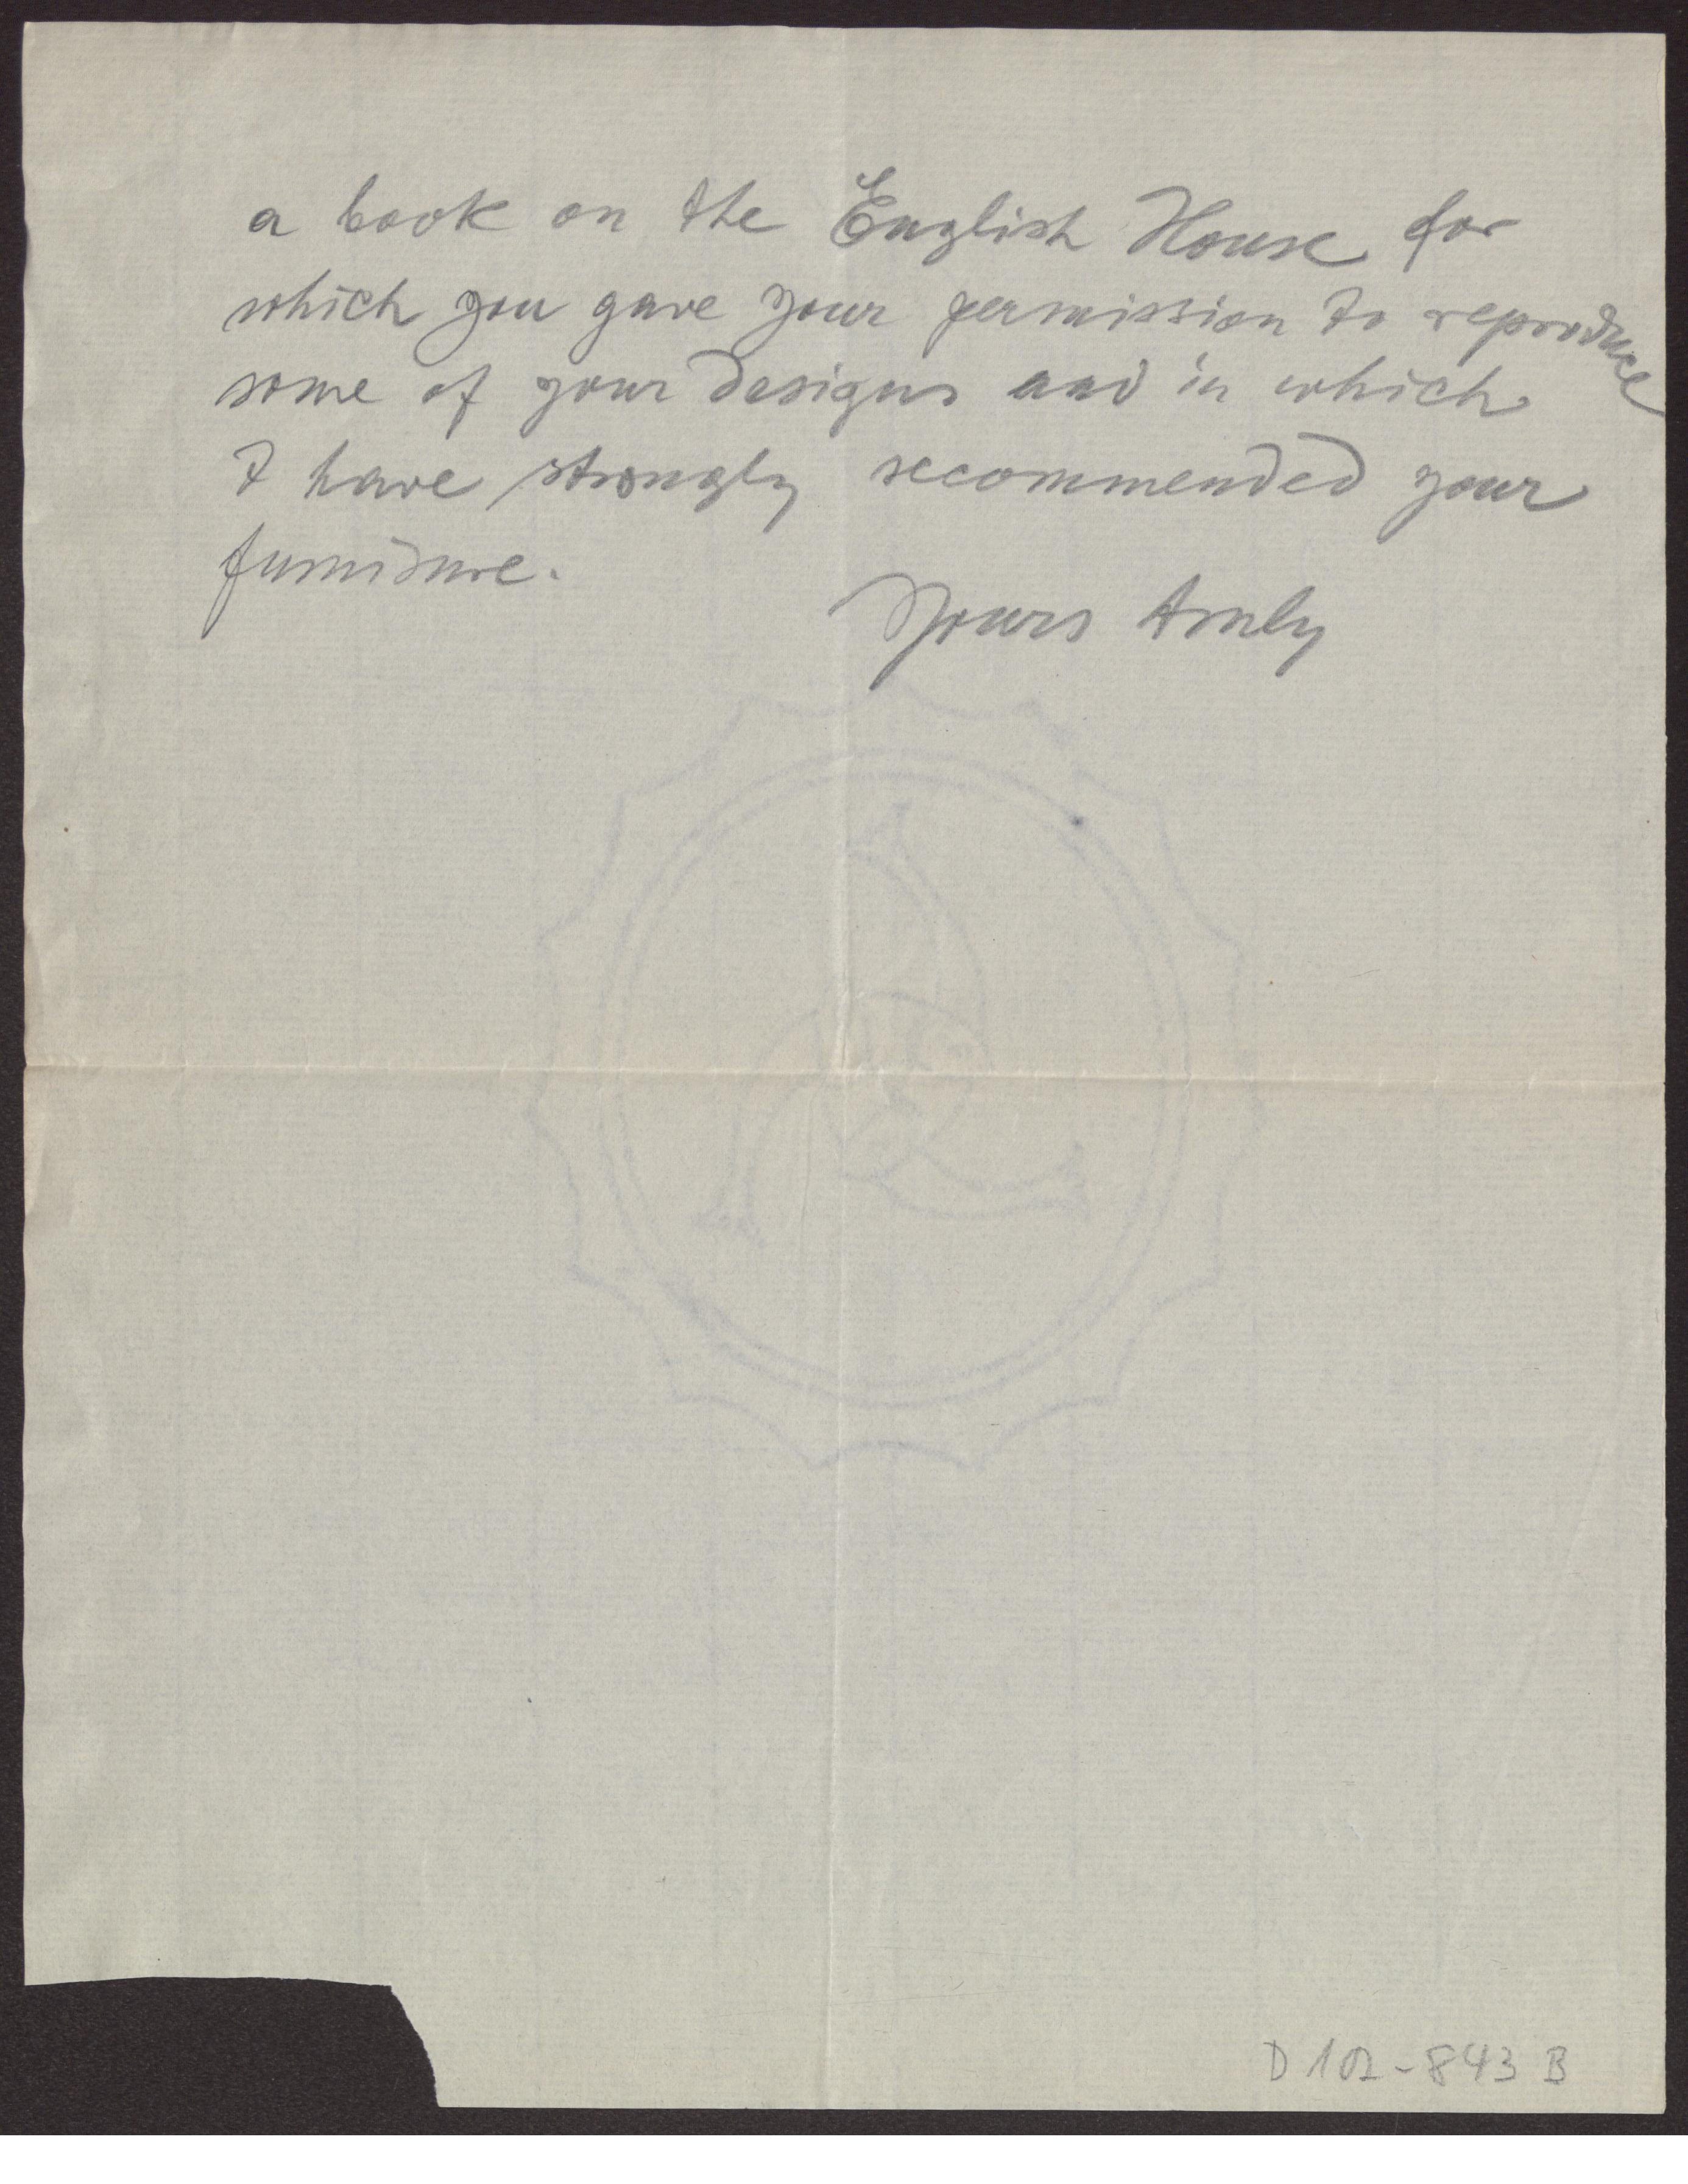 a book on the English House for
which you gave your permission to reproduce
some of your designs and in which
I have strongly recommended your
furniture.
Yours truly
D 102-843 B